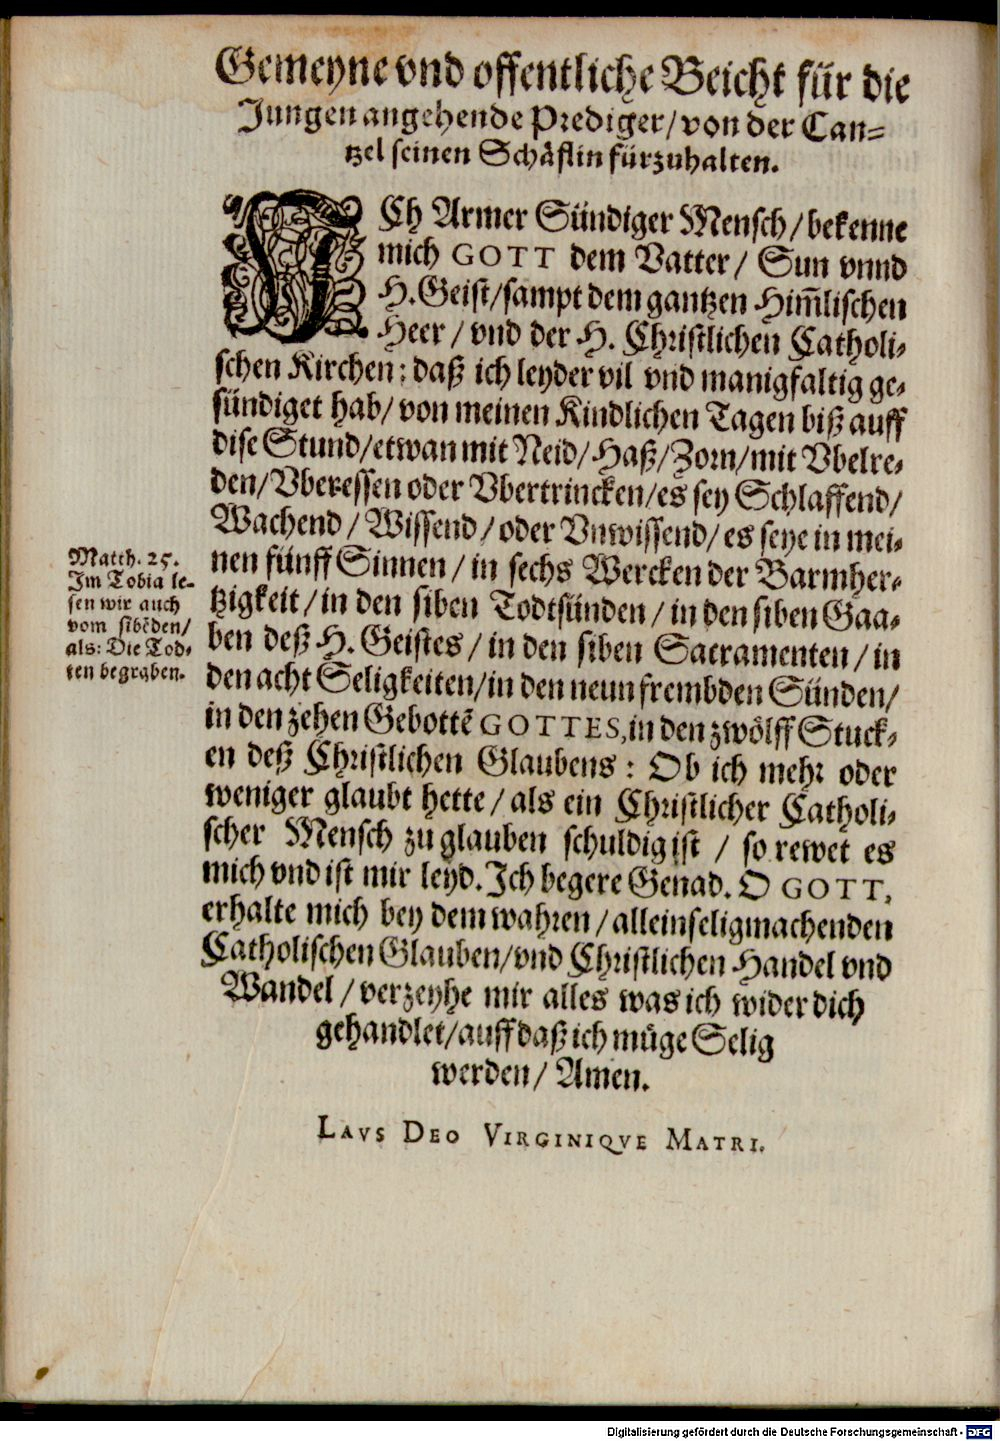 Gemeyne vnd offentliche Beicht für die
Jungen angehende Prediger/ von der Can=
tzel seinen Schåflin fürzuhalten.
ICh Armer Sündiger Mensch/ bekenne
mich GOTT dem Vatter/ Sun vnnd
H. Geist/ sampt dem gantzen Him̃lischen
Heer/ vnd der H. Christlichen Catholi=
schen Kirchen: daß ich leyder vil vnd manigfaltig ge=
sündiget hab/ von meinen Kindlichen Tagen biß auff
dise Stund/ etwan mit Neid/ Haß/ Zorn/ mit Vbelre=
den/ Vberessen oder Vbertrincken/ es sey Schlaffend/
Wachend/ Wissend/ oder Vnwissend/ es seye in mei=
nen fünff Sinnen/ in sechs Wercken der Barmher=
tzigkeit/ in den siben Todtsünden/ in den siben Gaa=
ben deß H. Geistes/ in den siben Sacramenten/ in
den acht Seligkeiten/ in den neun frembden Sünden/
in den zehen Gebottẽ GOTTES, in den zwölff Stuck=
en deß Christlichen Glaubens: Ob ich mehr oder
weniger glaubt hette/ als ein Christlicher Catholi=
scher Mensch zu glauben schuldig ist/ so rewet es
mich vnd ist mir leyd. Ich begere Genad. O GOTT,
erhalte mich bey dem wahren/ alleinseligmachenden
Catholischen Glauben/ vnd Christlichen Handel vnd
Wandel/ verzeyhe mir alles was ich wider dich
gehandlet/ auff daß ich müge Selig
werden/ Amen.
LAVS DEO VIRGINIQVE MATRI.
Matth. 25.
Im Tobia le=
sen wir auch
vom sibẽden/
als: Die Tod=
ten begraben.
Digitalisierung gefördert durch die Deutsche Forschungsgemeinschaft - DFG